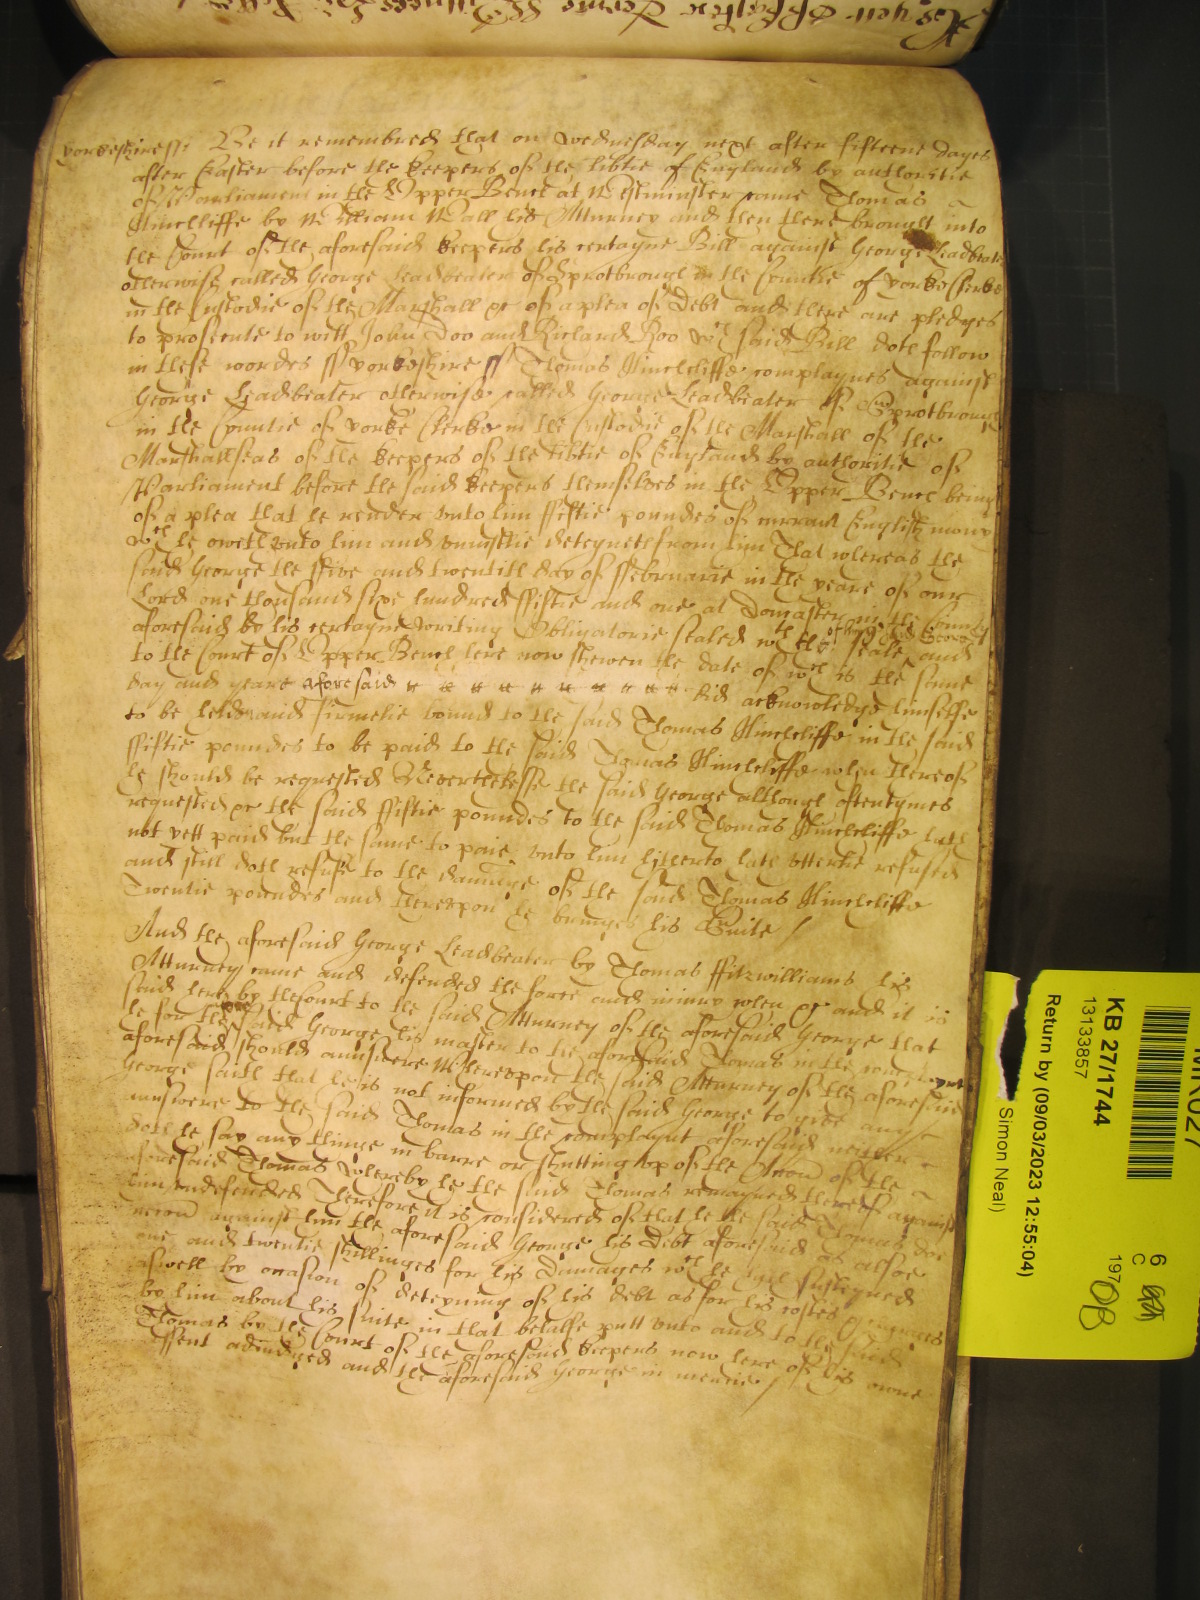 yorkeshire ss Be it remembred that on wednesday next after fifteene dayes
after Easter before the keepers of the libtie of England by authoritie
of Parliament in the Upper Bench at Westminster came Thomas
Hinchcliffe by William Wall his Atturney and then there brought into
the Court of the aforesaid keepers his certayne Bill against George Leadbeater
otherwise called George Leadbeater of Sprotbrough in the Countie of yorke Clerke
in the Custodie of the Marshall &c of a plea of Debt and there are pledges
to prosecute to witt John Doo and Richard Roo wch said Bill doth follow
in these woordes ss yorkeshire ss Thomas Hinchcliffe complaynes against
George Leadbeater otherwise called George Leadbeater of Sprotbrough
in the Countie of yorke Clerke in the Custodie of the Marshall of the
Marshallseas of the keepers of the libtie of England by authoritie of
Parliament before the said keepers themselves in the Upper Bench being
of a plea that he render unto him ffiftie poundes of currant English mony
wch he oweth unto him and uniustlie deteyneth from him That whereas the
said George the ffive and twentith day of ffebruarie in the yeare of our
Lord one thousand sixe hundred ffiftie and one at Doncaster in the County
aforesaid by his certayne writing Obligatorie sealed wth the seale of the said George and
to the Court of Upper Bench here now shewen the date of wch is the same
day and yeare aforesaid did acknowledge himselfe
to be held and firmelie bound to the said Thomas Hinchcliffe in the said
ffiftie poundes to be paid to the said Thomas Hinchcliffe when thereof
he should be requested Neverthelesse the said George although oftentymes
requested &c the said ffiftie poundes to the said Thomas Hinchcliffe hath
not yett paid but the same to paie unto him hitherto hath utterlie refused
and still doth refuse to the damage of the said Thomas Hinchcliffe
Twentie poundes and thereupon he bringes his Suite /
And the aforesaid George Leadbeater by Thomas ffitzwilliams his
Atturney came and defended the force and iniury when &c and it is
said here by the Court to the said Atturney of the aforesaid George that
he for the said George his master to the aforesaid Thomas in the complaynt
aforesaid should answere Whereupon the said Atturney of the aforesaid
George saith that he is not informed by the said George to give any
answere to the said Thomas in the complaynt aforesaid neither
doth he say any thinge in barre or shutting up of the Accon of the
aforesaid Thomas whereby he the said Thomas remayned thereof against
him undefended Therefore it is considered of that he the said Thomas doe
recover against him the aforesaid George his Debt aforesaid as alsoe
one and twentie shillinges for his Damages wch he hath susteyned
aswell by occasion of deteyning of his debt as for his costes & charges
by him about his suite in that behalfe putt unto and to the said
Thomas by the Court of the aforesaid keepers now here of his owne
assent adiudged and the aforesaid George in mercie /
KB 27/1744
13133857
Return by (09/03/2023 12:55:04)
Simon Neal)
6
C
1970
08